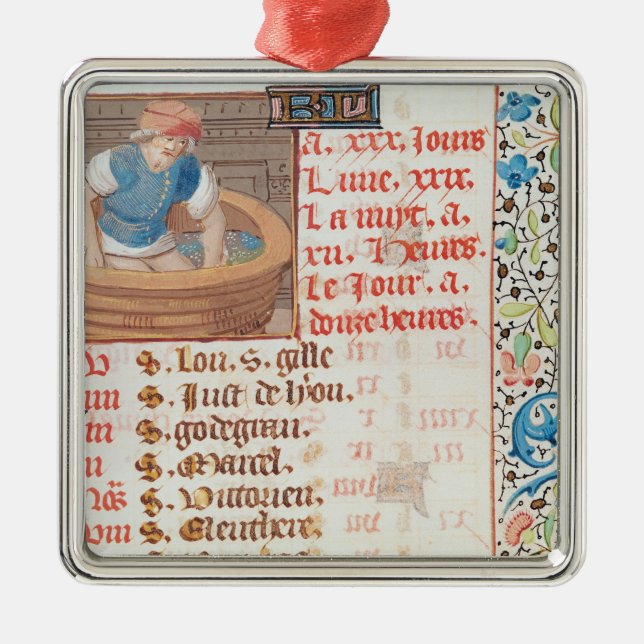 a. xxx. Jours
Lune. xxix.
La nuyt. a.
xii. Heures.
Le Jour. a.
douze heures.
v S. Lou. S. gille
iiii S. Just de lyon.
iii S. godegran.
ii S. Marcel.
Noñs S. Victorien.
viii S. Eleuthere.